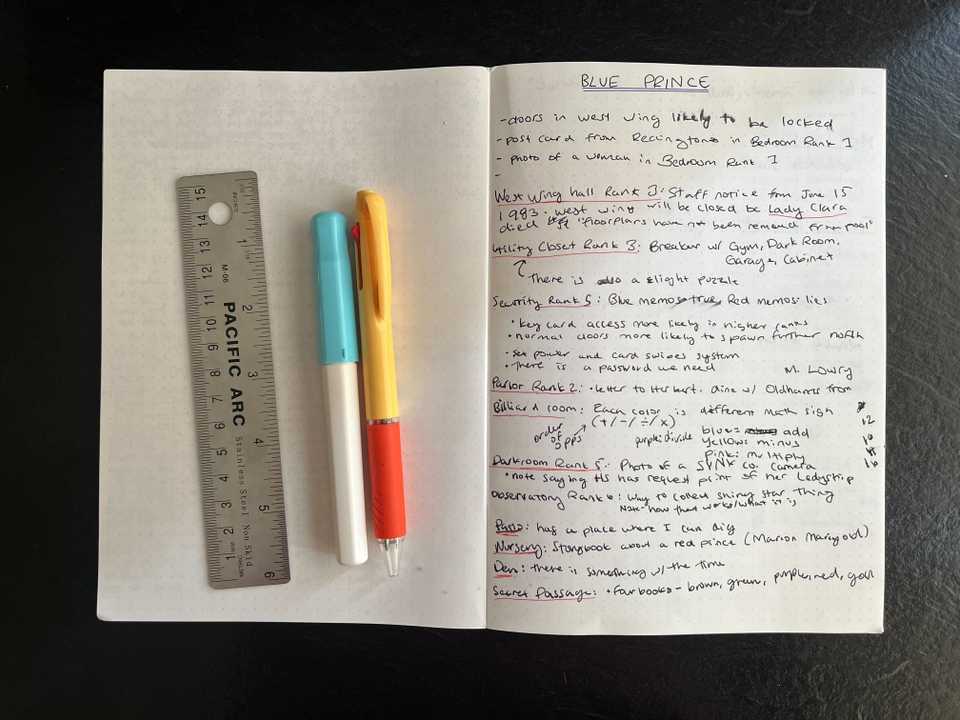 BLUE PRINCE
- doors in west wing likely to be locked
- post card from Reddingtons in Bedroom Rank 1
- photo of a woman in Bedroom Rank 1
-
West Wing hall Rank 3: Staff notice from June 15
1983. west wing will be closed bc Lady Clara
died "floorplans have not been removed from pool"
Utility Closet Rank 3: Breaker w/ Gym, Dark Room,
Garage, Cabinet
There is also a slight puzzle
Security Rank 5: Blue memos true, Red memos: lies
• key card access more likely in higher ranks
• normal doors more likely to spawn further north
• set power and card swipes system
• There is a password we need
M. Lowry
Parlor Rank 2: • letter to Herbert. dine w/ from
Billiard room: Each color is different math sign
(+/-/÷/x)
order of ops
blue = add
purple: divide yellow: minus
pink: multiply
12
10
16
Darkroom Rank 5: Photo of a co. camera
• note saying HS has request print of her Ladyship
Observatory Rank 6: way to collect shiny star thing
Note - how that works/what it is
Patio: has a place where I can dig
Nursery: Storybook about a red prince (Marion Marigold)
Den: there is something w/ the time
Secret Passage: • four books - brown, green, purple, red, gold
15 14 13 12 11 10 9 8 7 6 5 4 3 2 1
1 2 3 4 5 6
M-06
PACIFIC ARC
Stainless Steel Non Skid